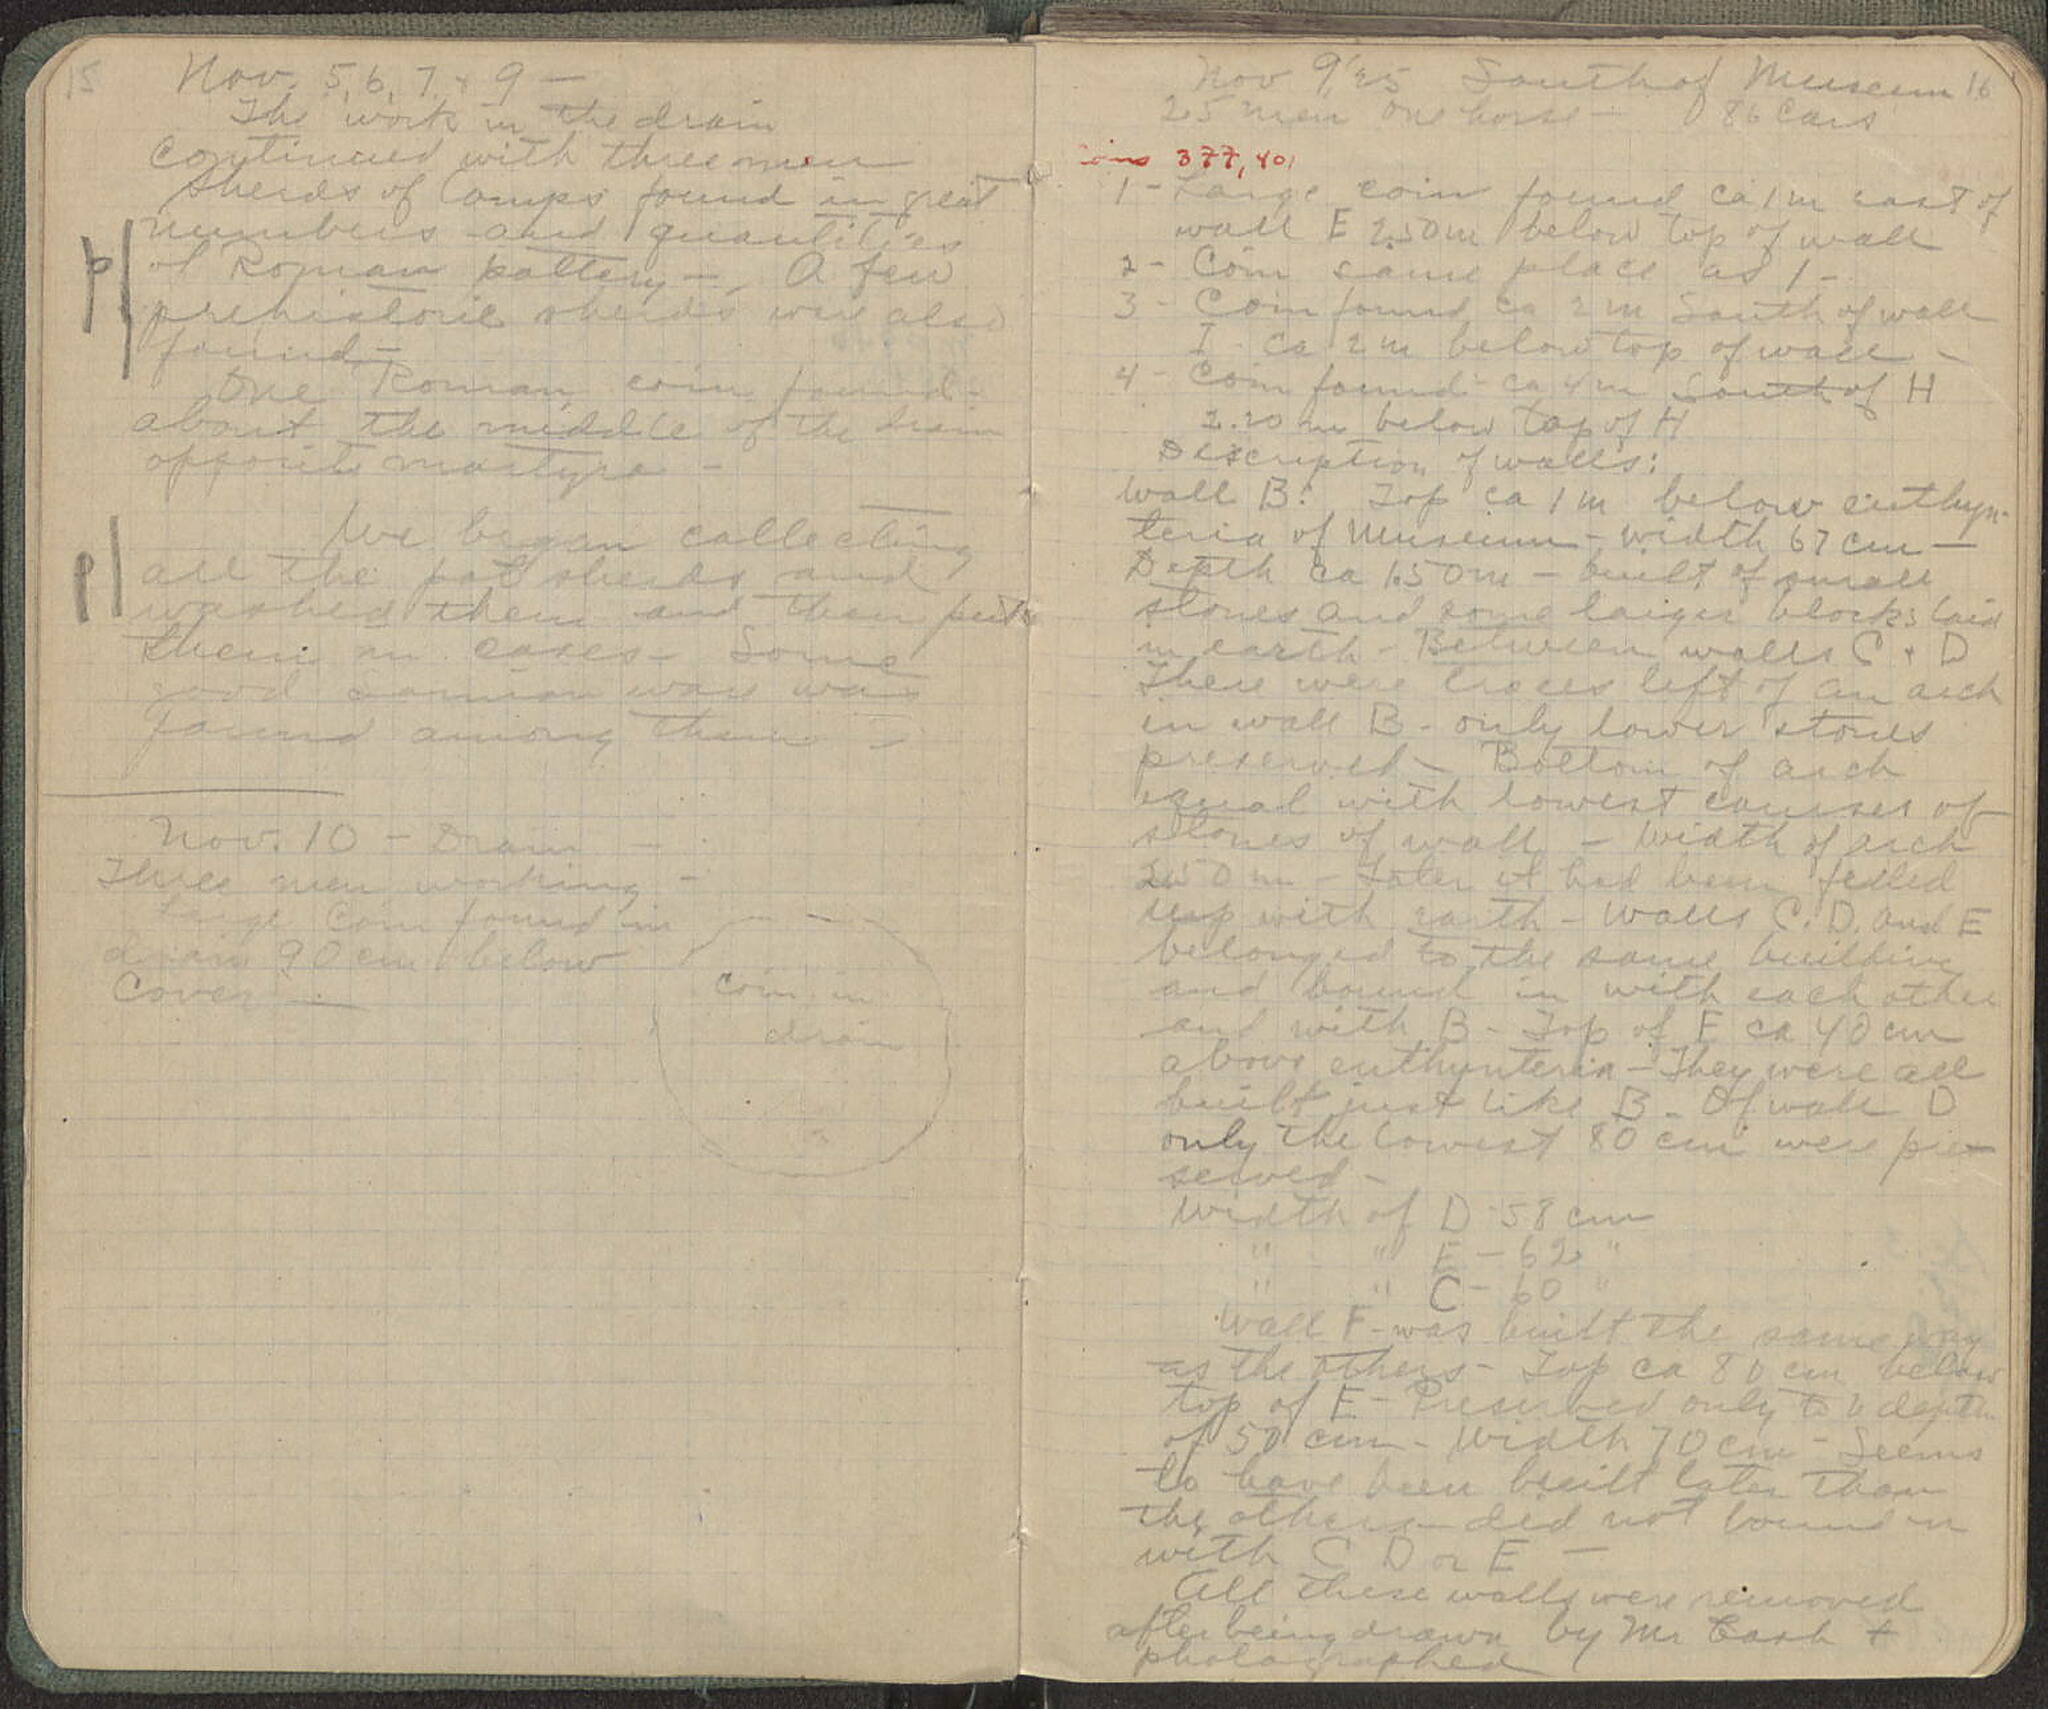 15
Nov. 5, 6, 7, + 9 —
The work in the drain
continued with three men
Sherds of Lamps found in great
numbers and quantities
p
of Roman pottery — A few
prehistoric sherds were also
found —
One Roman coin found
about the middle of the drain
opposite martyra —
We began collecting
p
all the pot sherds and
washed them and then put
them in cases — Some
good Samian ware was
found among them —
Nov. 10 — Drain —
Three men working —
Large Coin found in
drain 90 cm below
Cover —
Coin in
drain
Nov 9, '25 South of Museum 16
25 men one horse — 86 Cars
Coins 377, 401
1 - Large coin found ca 1 m east of
wall E 2.50 m below top of wall
2 - Coin same place as 1 -
3 - Coin found ca 2 m South of wall
I - ca 2 m below top of wall —
4 - Coin found - ca 4 m South of H
2.20 m below top of H
Description of walls:
Wall B: Top ca 1 m below euthyn-
teria of Museum - width 67 cm —
Depth ca 1.50 m — built of small
stones and some larger blocks laid
in earth - Between walls C + D
There were traces left of an arch
in wall B - only lower stones
preserved — Bottom of arch
equal with lowest courses of
stones of wall — Width of arch
2.50 m — Later it had been filled
up with earth — Walls C. D. and E
belonged to the same building
and bound in with each other
and with B - Top of E ca 40 cm
above euthynteria — They were all
built just like B - Of wall D
only the lowest 80 cm were pre-
served -
Width of D - 58 cm
" " E - 62 "
" " C - 60 "
Wall F - was built the same way
as the others - Top ca 80 cm below
top of E - Preserved only to a depth
of 50 cm - Width 70 cm - Seems
to have been built later than
the others - did not bound in
with C D or E —
All these walls were removed
after being drawn by Mr Cash +
photographed